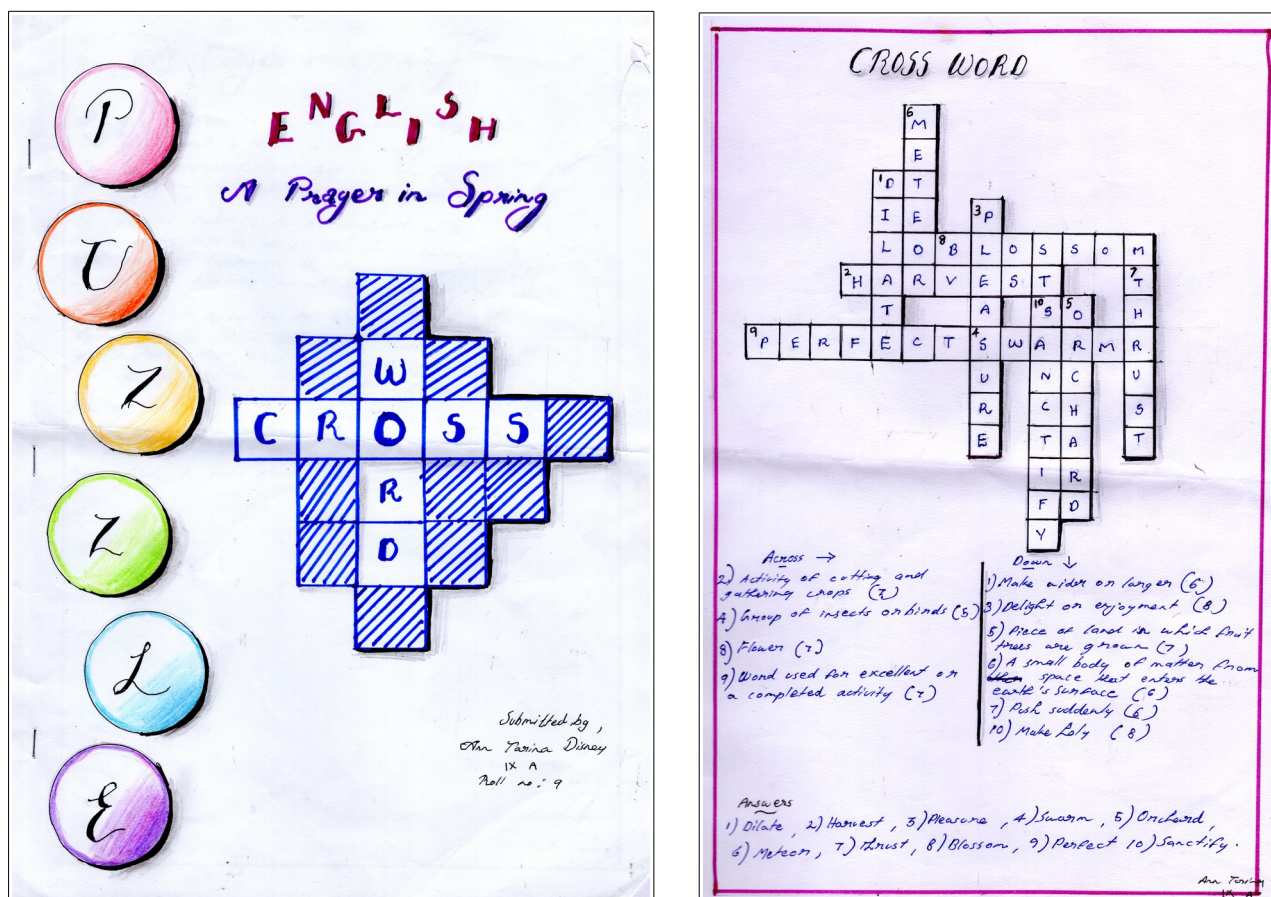 P
U
Z
Z
L
E
ENGLISH
A Prayer in Spring
W
CROSS
R
D
Submitted by,
Ann Tarina Disney
IX A
Roll no: 9
CROSS WORD
6 M
E
1 D T
I E 3 P
L O 8 B L O S S O M
2 H A R V E S T 7 T
T A 10 S 5 O H
9 P E R F E C T 4 S W A R M R
U N C U
R C H S
E T A T
I R
F D
Y
Across →
2) Activity of cutting and
gathering crops (7)
4) Group of insects or birds (5)
8) Flower (7)
9) Word used for excellent or
a completed activity (7)
Down ↓
1) Make wider or larger (6)
3) Delight or enjoyment (8)
5) Piece of land in which fruit
trees are grown (7)
6) A small body of matter from
space that enters the
earth's surface (6)
7) Push suddenly (6)
10) Make holy (8)
Answers
1) Dilate, 2) Harvest, 3) Pleasure, 4) Swarm, 5) Orchard,
6) Meteor, 7) Thrust, 8) Blossom, 9) Perfect 10) Sanctify.
Ann Tarina
IX A